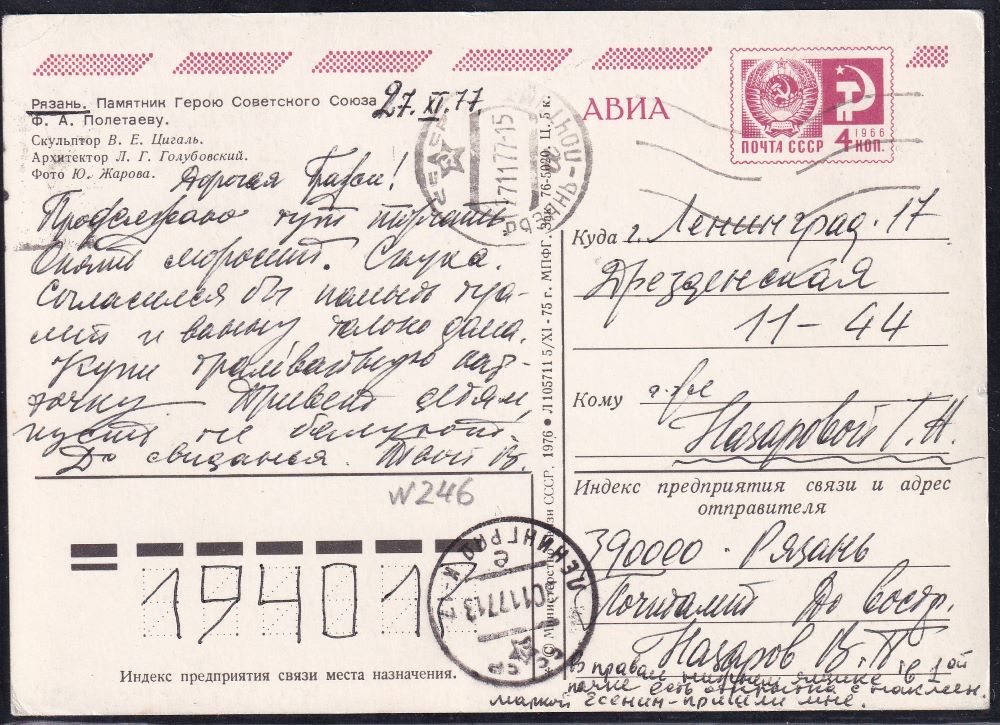 Рязань. Памятник Герою Советского Союза
Ф. А. Полетаеву.
Скульптор В. Е. Цигаль.
Архитектор Л. Г. Голубовский.
Фото Ю. Жарова.
27. XI. 77
АВИА
1966
ПОЧТА СССР 4 КОП.
Дорогая
Продолжаю тут торчать.
Опять моросит. Скука.
Согласился бы помыть
и ванну только дома.
Купи трамвайную кар-
точку Привет детям,
пусть не балуют.
До свиданья. Твой В.
W246
Куда г. Ленинград. 17
Дрезденская
11-44
Кому
Назаровой Т. Н.
Индекс предприятия связи и адрес
отправителя
390000 - Рязань
Почтамт До востр.
Назаров В. П.
В правом нижнем ящике в 1ой
пачке есть открытка с наклеен.
маркой Есенин-пришли мне.
194017
Индекс предприятия связи места назначения.
© Министерство связи СССР, 1976 ● Л 105711 5/XI-75 г. МПФГ. Зак. 76-5020. Ц. 5 к.
РЯЗАНЬ-ПОЧТАМТ
ЛЕНИНГРАД
СССР